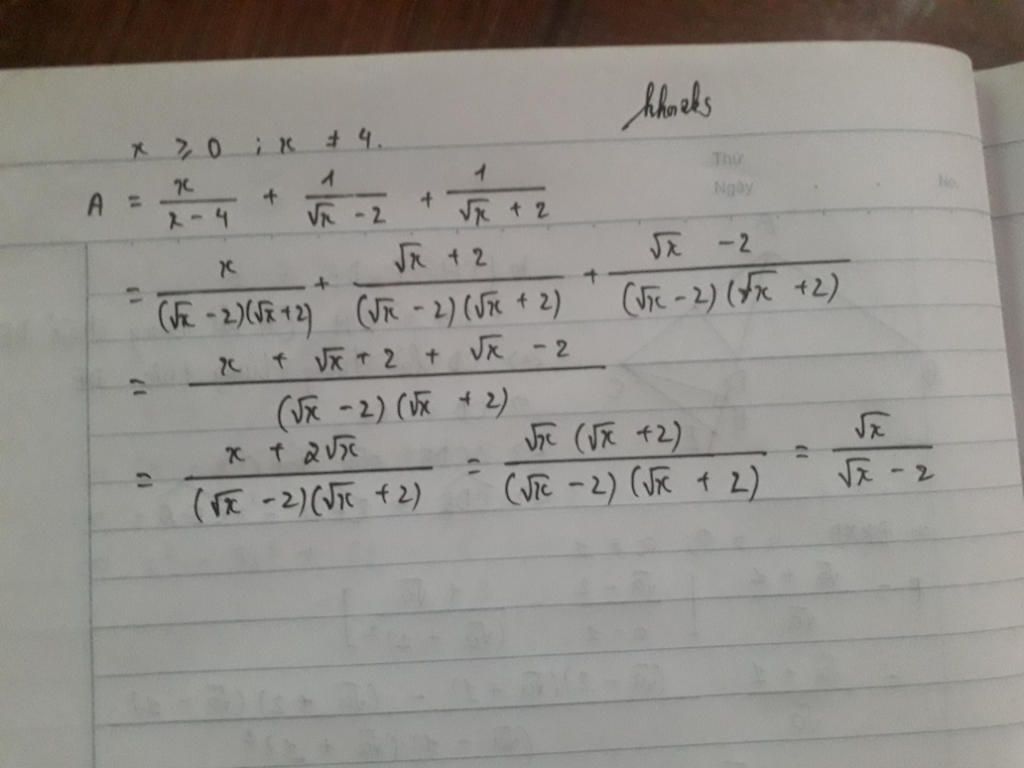 khoreks
x ≥ 0 ; x ≠ 4.
Thứ
Ngày . . No.
A = x/(x - 4) + 1/(√x - 2) + 1/(√x + 2)
= x/((√x - 2)(√x + 2)) + (√x + 2)/((√x - 2)(√x + 2)) + (√x - 2)/((√x - 2)(√x + 2))
= (x + √x + 2 + √x - 2)/((√x - 2)(√x + 2))
= (x + 2√x)/((√x - 2)(√x + 2)) = (√x(√x + 2))/((√x - 2)(√x + 2)) = √x/(√x - 2)